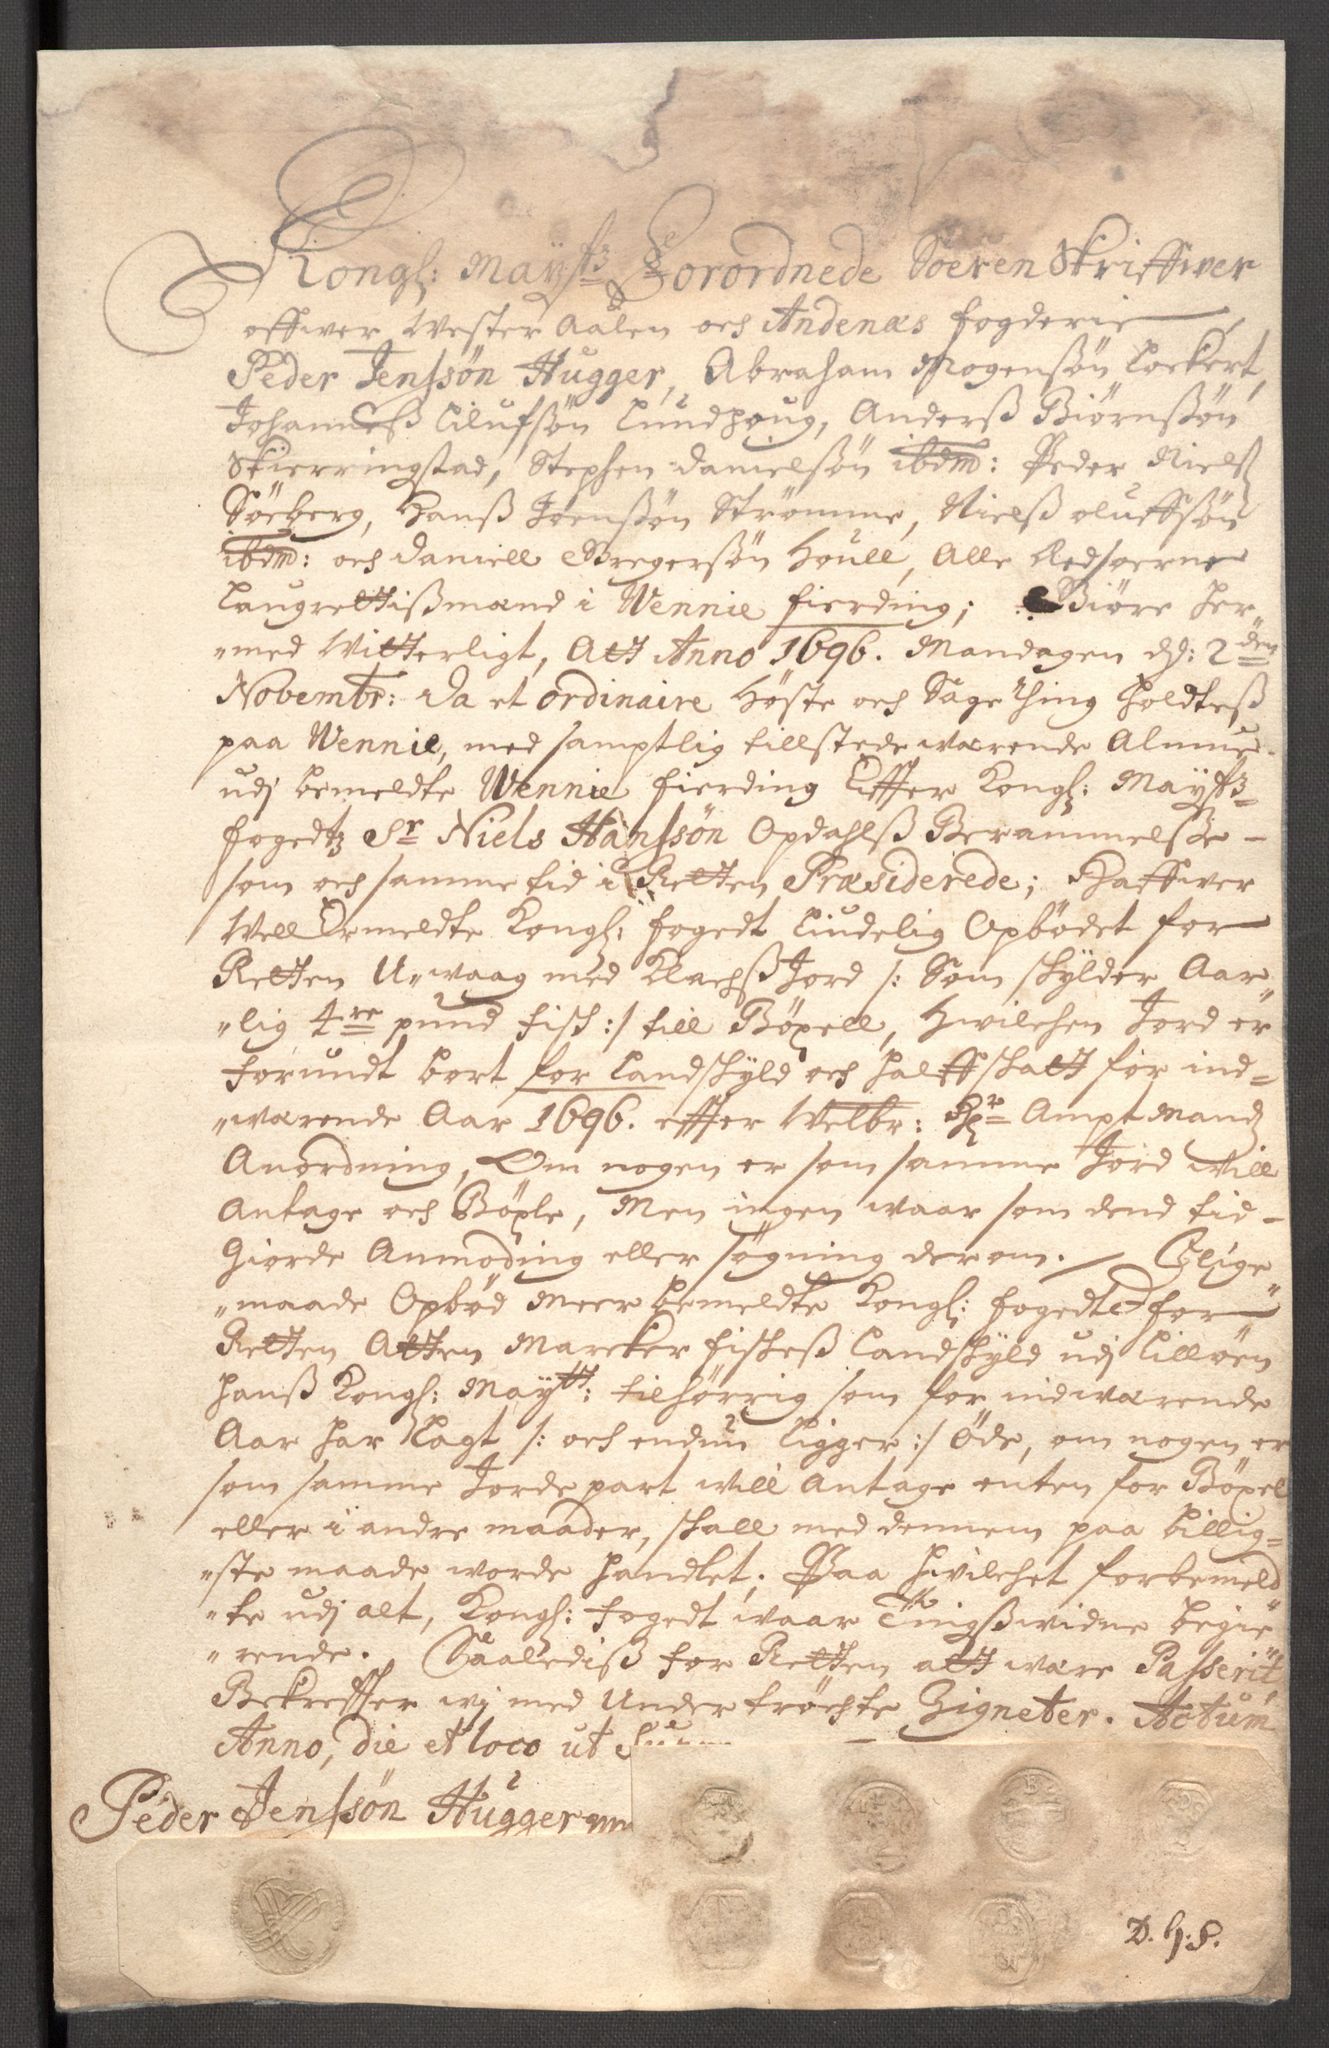 Kongl: Mayts Forordnede Soeren Skriffwer
offwer Wester Aalen och Andenæs fogderie
Peder Jenssøn Hugger, Abraham Mogensøn Lockert,
Johanneß Olufsøn Lundhoug, Anderß Biørnssøn
Skierringstad, Stephen Danielsøn ibdm: Peder Nielß
Søeberg, Hanß Joenssøn Strømme, Nielß oluffsøn
ibdm: och Daniell Gregersøn Houll, Alle Eedsoerne
Laugrettißmænd i Wennie fierding; Giøre her
"med Witterligt, Att Anno 1696. Mandagen d: 2den
Novembr: Da et ordinaire Høste och Sage thing holdteß
paa Wennie, med samptlig tillstedewærende Almue
udj bemeldte Wennie fierding Effter Kongl: Mayts
fogedtz Sr Niels Hanssøn Opdahlß Berammelse -
som och samme tid i Retten Præsiderede; Haffwer
Well Ermeldte Kongl: fogedt liudelig Opbødet for
Retten U"waag med Klachß Jord /: Som skylder Aar
"lig 4re pund fisk :/ till Böxell, Hwilchen Jord er
forundt bort for Landskyld och halff skatt for ind=
"wærende Aar 1696. effter Welbr: Hr Ampt Mandz
Anordning, Om nogen er som samme Jord will
Antage och Böxle, Men ingen waar som dend tid -
Giorde Anmoding eller søgning derom. / Lige
"maade Opbød Meerbemeldte Kongl: fogedte for
Retten Atten Marcker fiskeß Landskyld udj Lilløen
hanß Kongl: Maytt: tilhørrig som for indwærende
Aar har Lagt /: och endnu ligger :/ Øde, om nogen er
som samme Jorde part will Antage enten for Böxel
eller i andre maader, skall med dennem paa billig=
"ste maade worde handlet; Paa hwilchet forbemeld
"te udj alt, Kongl: fogedt waar Tingßwidne begie
"rende. Saalediß for Retten att være Passerit
Bekreffter wj med Undertröchte Zigneter. Actum
Anno, die et loco ut Supra
Peder Jenssøn Hugger
D. H. S.